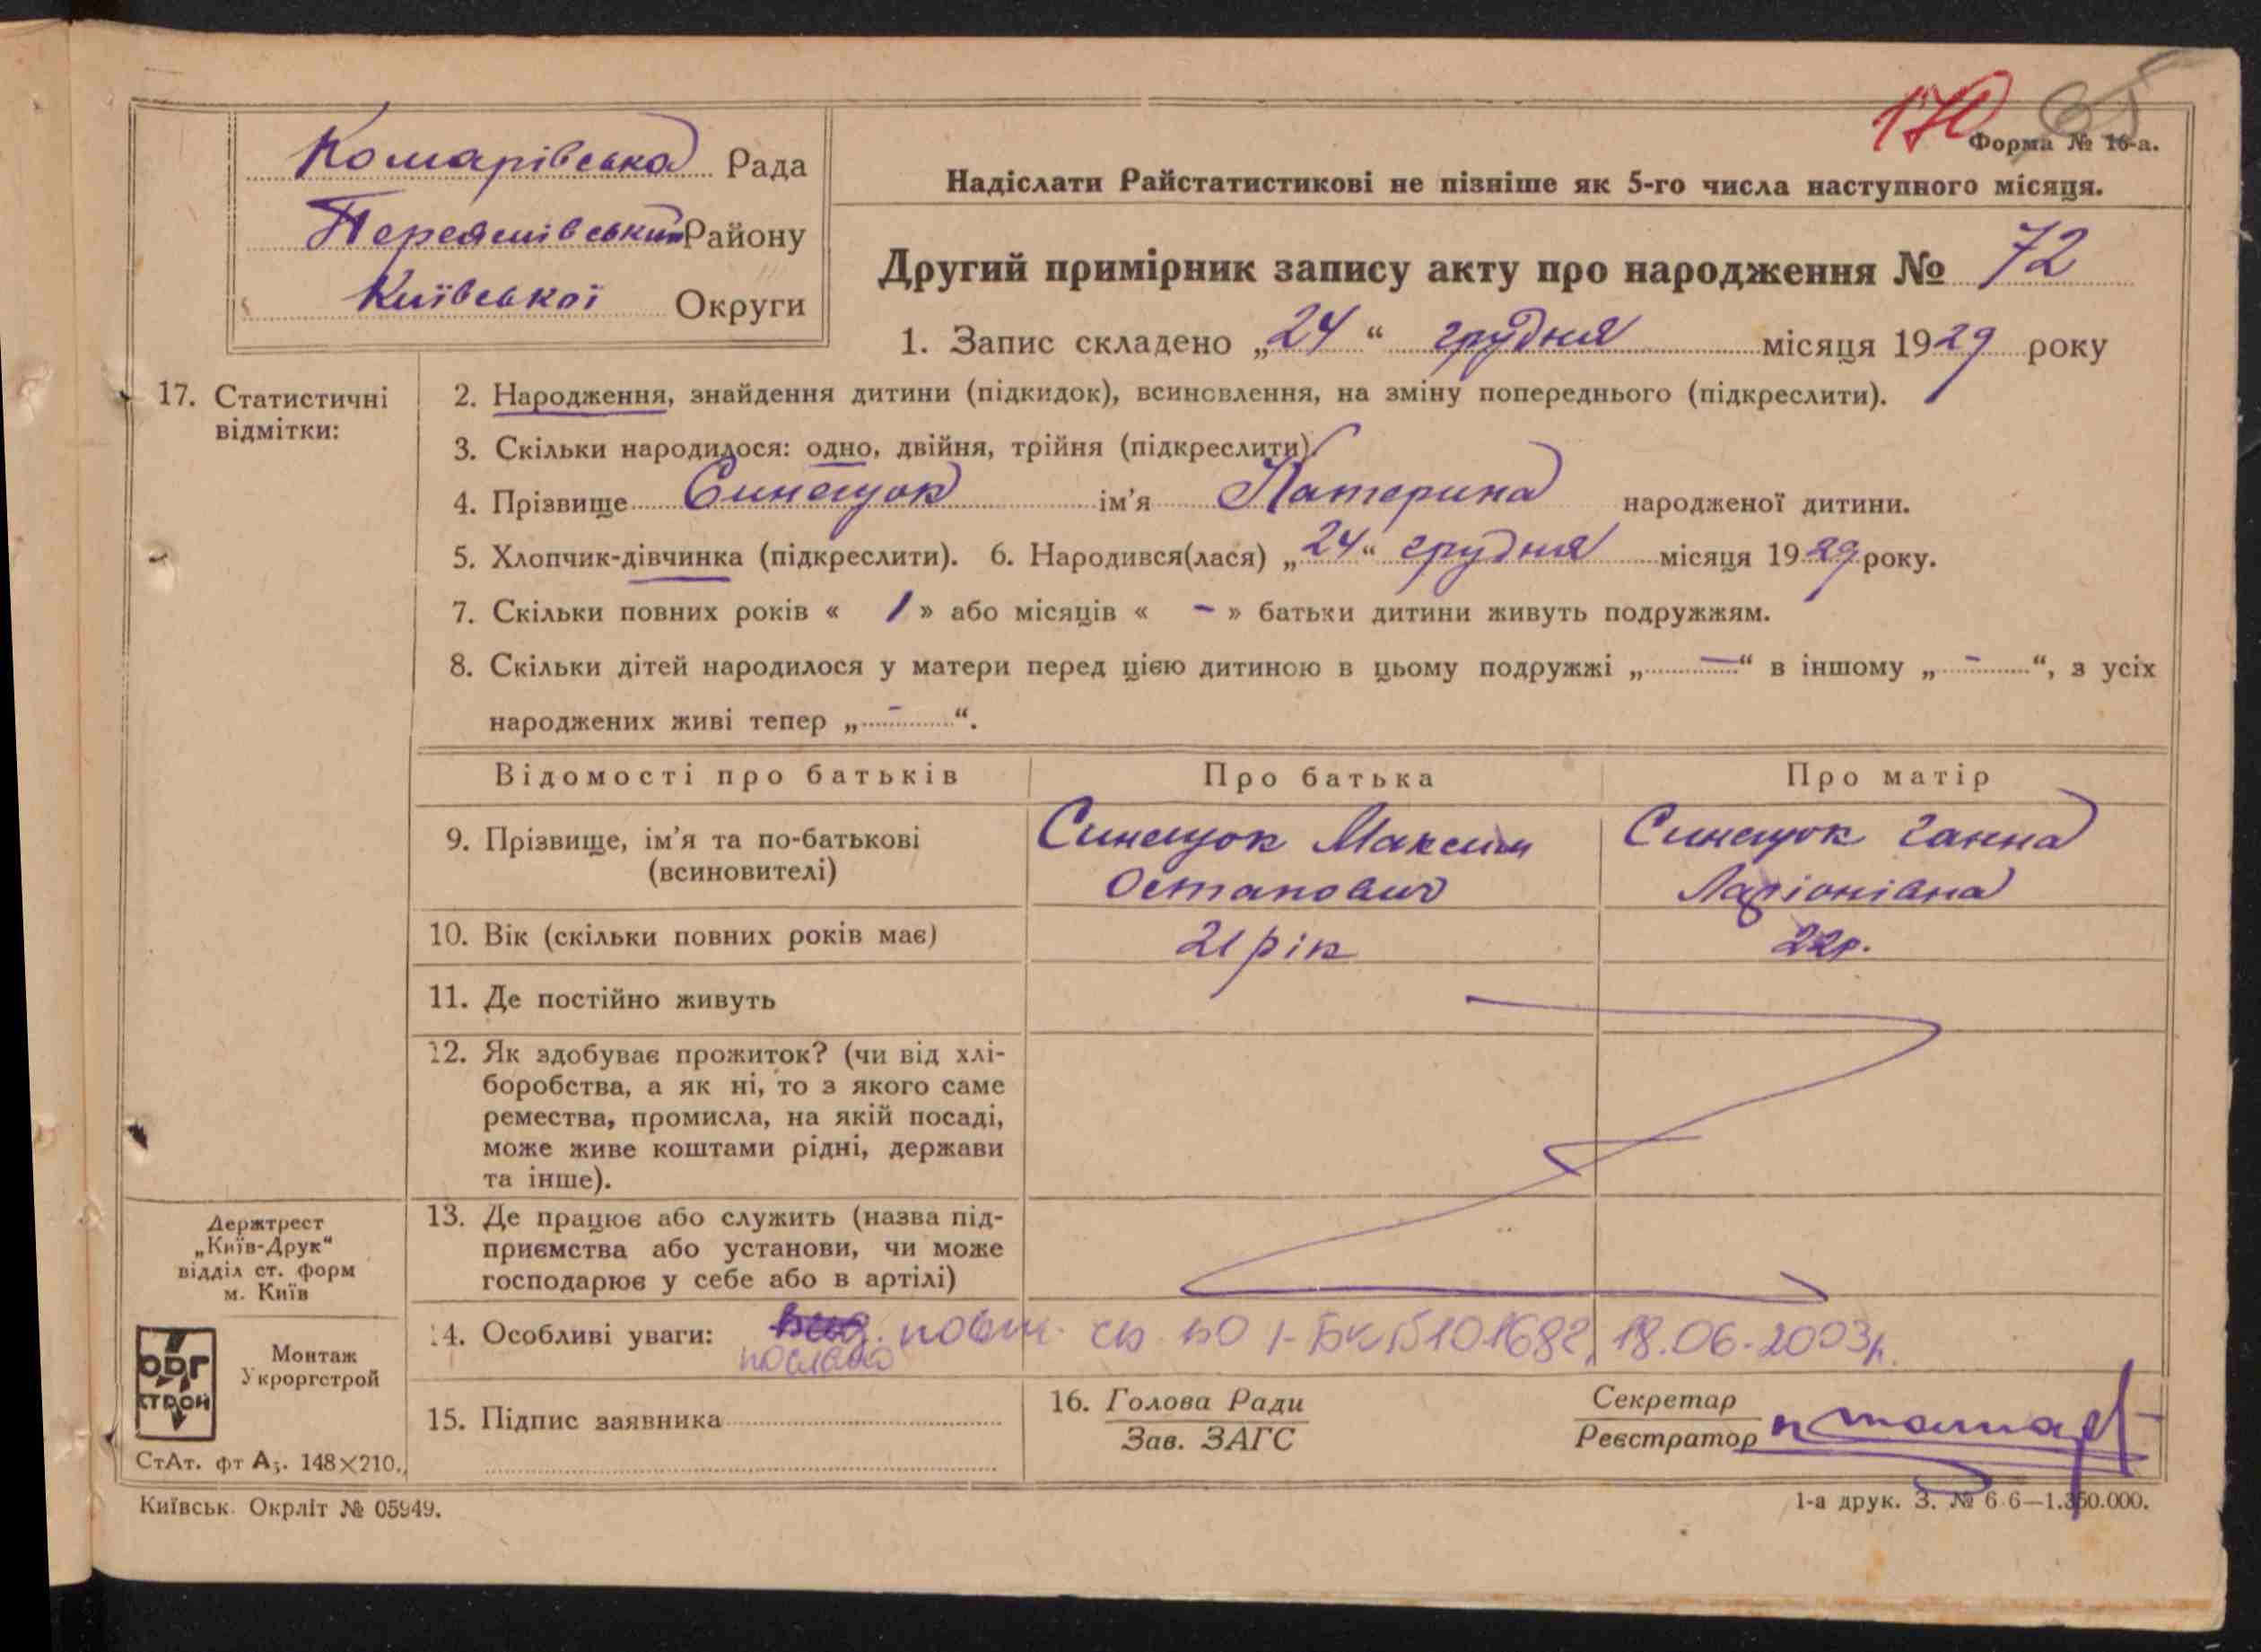 170 65
Форма № 16-а.
Комарівська Рада
Переяслівський Району
Київської Округи
Надіслати Райстатистикові не пізніше як 5-го числа наступного місяця.
Другий примірник запису акту про народження № 72
1. Запис складено „24“ грудня місяця 1929 року
17. Статистичні
відмітки:
2. Народження, знайдення дитини (підкидок), всиновлення, на зміну попереднього (підкреслити).
3. Скільки народилося: одно, двійня, трійня (підкреслити).
4. Прізвище Синещок ім’я Катерина народженої дитини.
5. Хлопчик-дівчинка (підкреслити). 6. Народився(лася) „24“ грудня місяця 1929 року.
7. Скільки повних років « 1 » або місяців « - » батьки дитини живуть подружжям.
8. Скільки дітей народилося у матери перед цією дитиною в цьому подружжі „—“ в іншому „-“, з усіх
народжених живі тепер „-“.
Відомості про батьків Про батька Про матір
9. Прізвище, ім’я та по-батькові
(всиновителі)
Синещок Максим
Остапович
Синещок Ганна
Ларіонівна
10. Вік (скільки повних років має) 21 рік 22 р.
11. Де постійно живуть
12. Як здобуває прожиток? (чи від хлі-
боробства, а як ні, то з якого саме
ремества, промисла, на якій посаді,
може живе коштами рідні, держави
та інше).
13. Де працює або служить (назва під-
приємства або установи, чи може
господарює у себе або в артілі)
14. Особливі уваги: повт. св. по І-БК №101682, 18.06.2003р.
послано
15. Підпис заявника
16. Голова Ради
Зав. ЗАГС
Секретар
Реєстратор
Держтрест
„Київ-Друк“
відділ ст. форм
м. Київ
ОРГ
СТРОЙ
Монтаж
Укроргстрой
СтАт. фт А5. 148×210.
Київськ. Окрліт № 05949.
1-а друк. З. № 6 6—1.350.000.